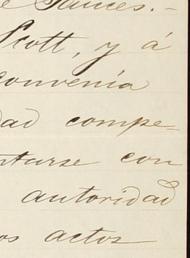 e Sances.-
Scott, y á
convenía
dad compe-
ntarse con
autoridad
os actos